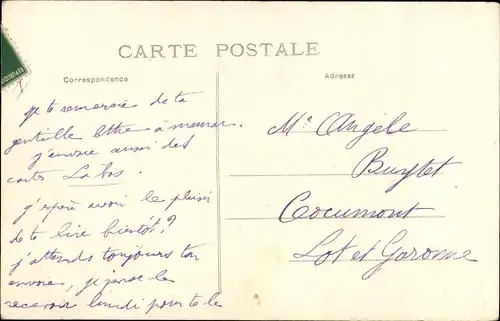 CARTE POSTALE
Correspondance
Adresse
je te remercie de ta
gentille lettre à maman.
j'envoie aussi des
cartes La bas.
j'espère avoir le plaisir
de te lire bientôt ?
j'attends toujours ton
envoie, je pense le
recevoir lundi pour te le
Me Angèle
Cocumont
Lot et Garonne